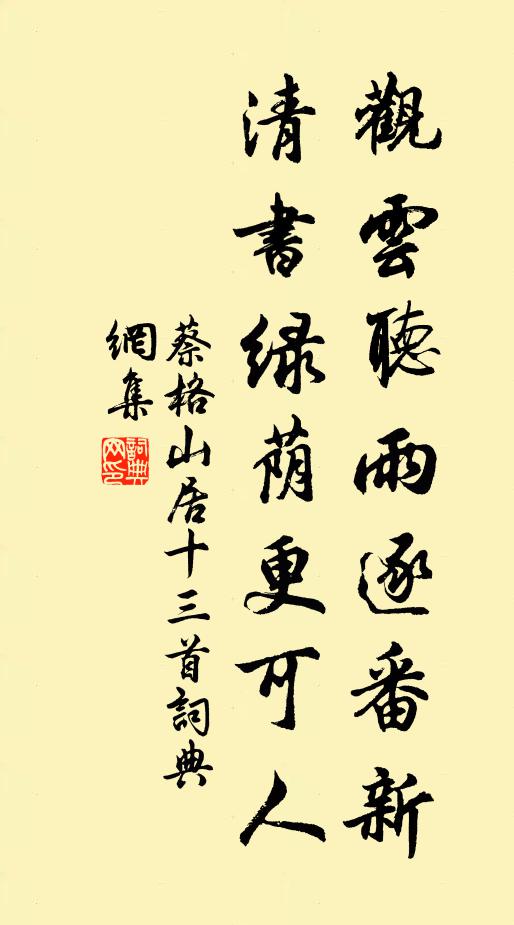 觀雲聽雨逐番新
清書绿荫更可人
蔡格山居十三首詞典
網集
詞典
网印